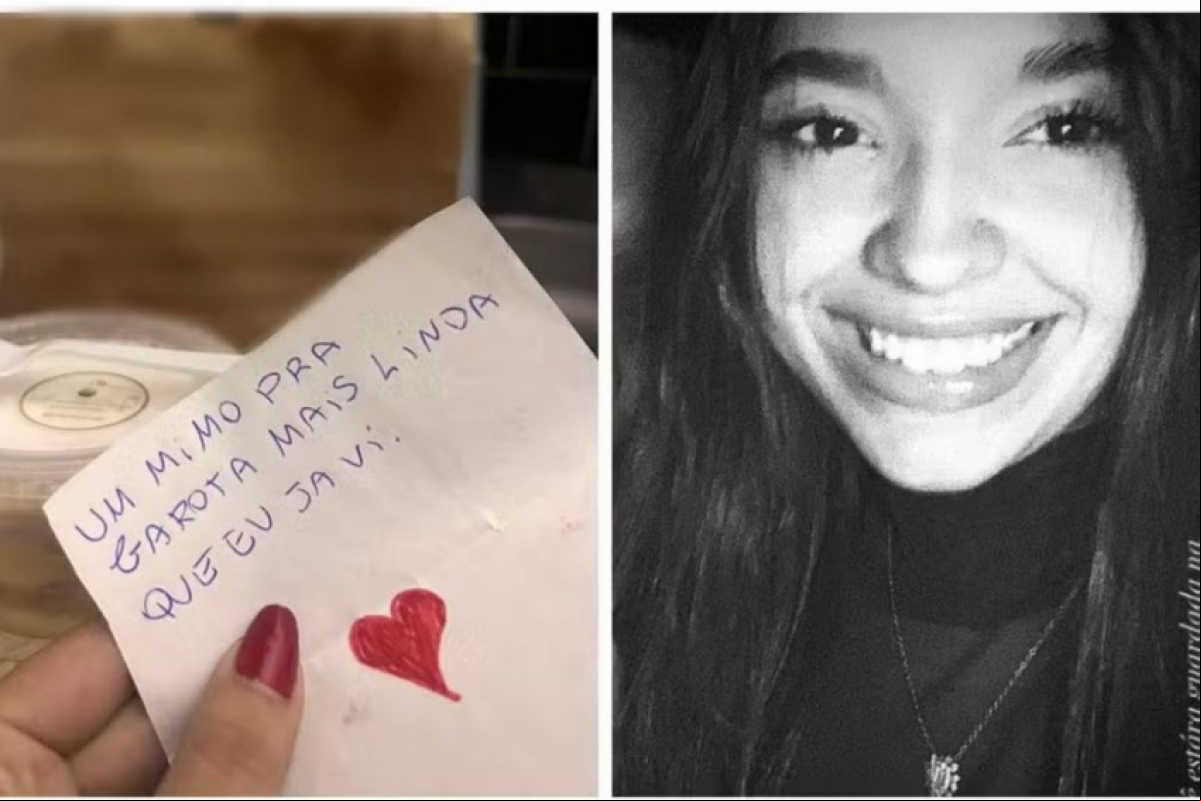 UM MiMO PRA
GAROTA MAiS LiNDA
QUE EU JA Vi.
estára guardada na